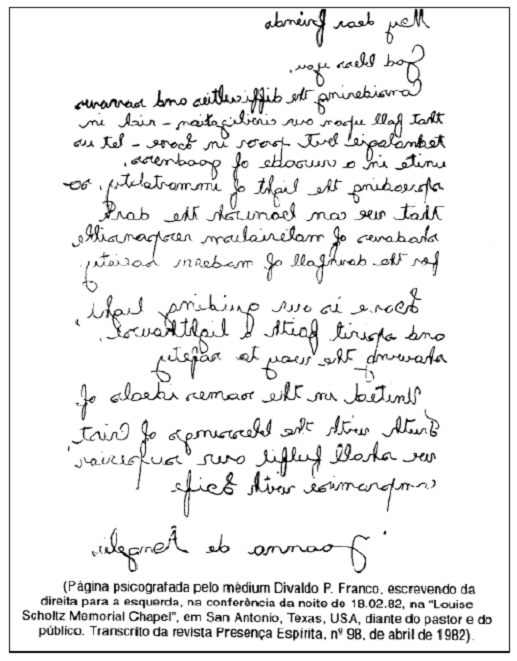 My dear Friends
God bless you.
Considering the difficulties and sorrows
that fall upon our - rich in
but poor in - let us
unite in a crusade of goodness,
spreading the light of immortality, so
that we can the dark
shadows of materialism
for the downfall of modern society
is our guiding light,
and spirit faith a lighthouse,
showing the way to safety
United in the same ideals of
Truth with the blessings of Christ,
we shall fulfil our superior
compromise with
Joanna de Ângelis.
(Página psicografada pelo médium Divaldo P. Franco, escrevendo da
direita para a esquerda, na conferência da noite de 18.02.82, na "Louise
Scholtz Memorial Chapel", em San Antonio, Texas, USA, diante do pastor e do
público. Transcrito da revista Presença Espírita, nº 98, de abril de 1982).